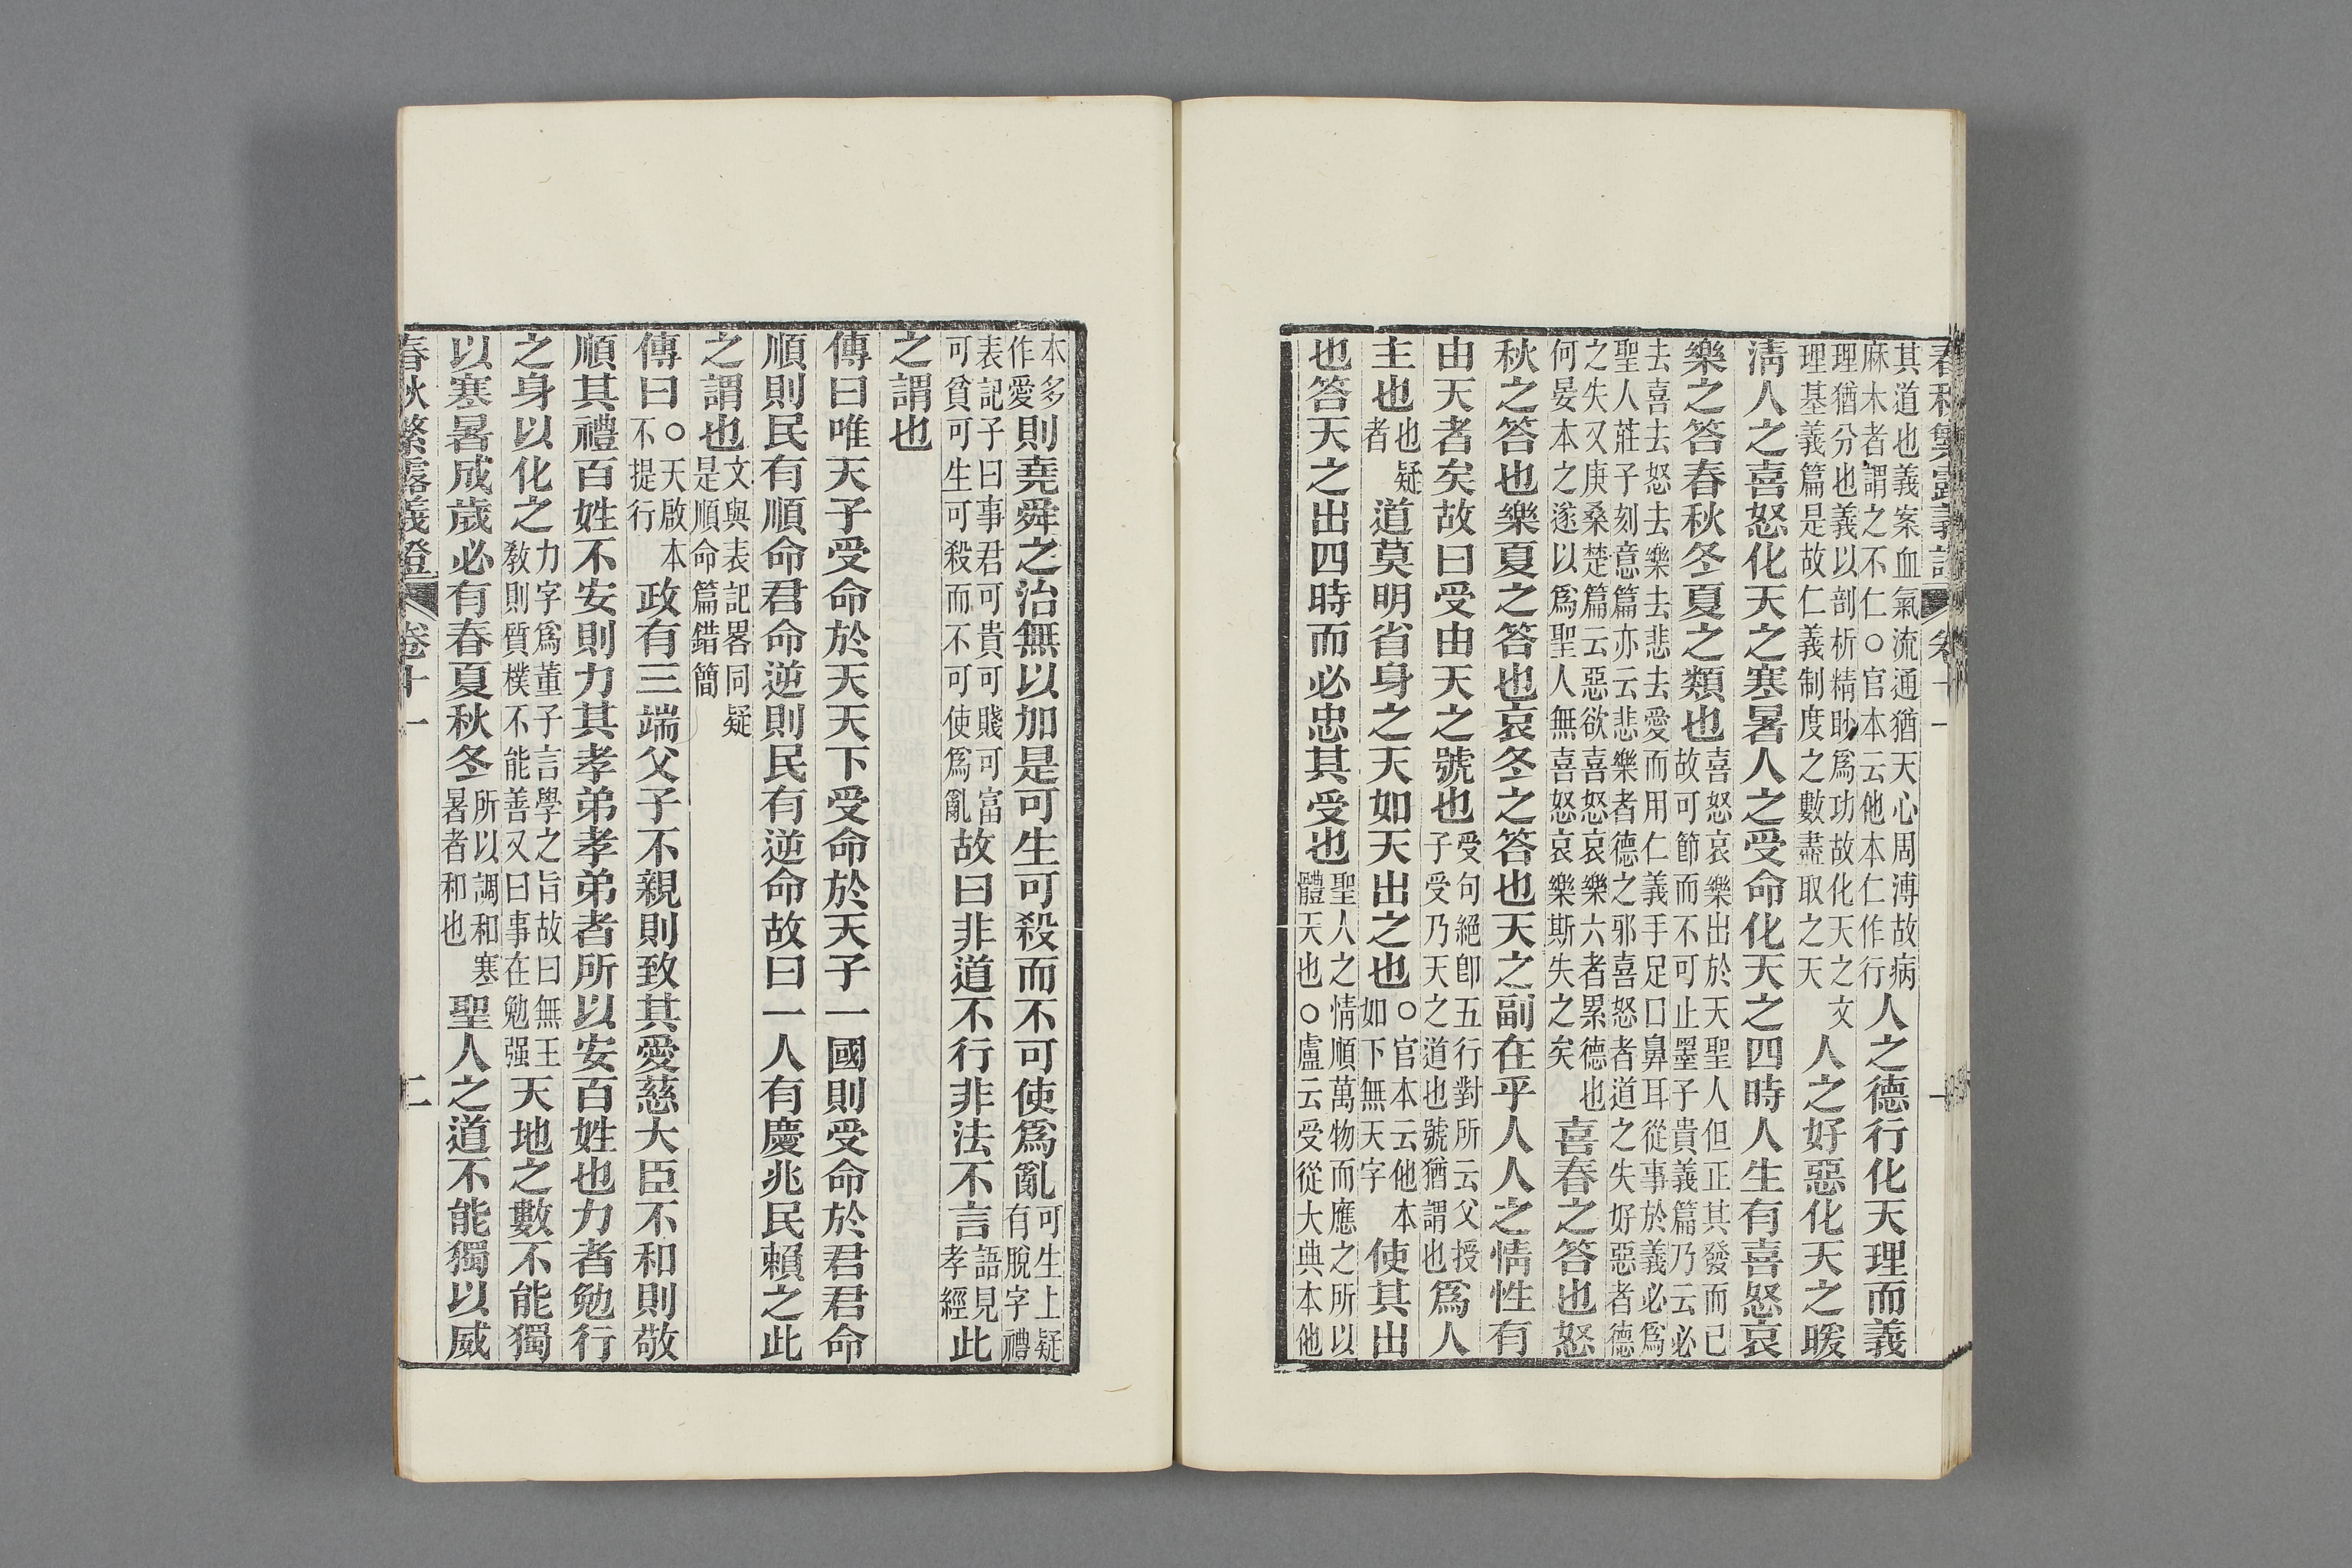 春秋繁露義證 卷十一 一
其道也義案血氣流通猶天心周溥故病麻木者謂之不仁○官本云他本仁作行人之德行化天理而義
理猶分也義以剖析精眇爲功故化天之文理基義篇是故仁義制度之數盡取之天人之好惡化天之暖
淸人之喜怒化天之寒暑人之受命化天之四時人生有喜怒哀
樂之答春秋冬夏之類也喜怒哀樂出於天聖人但正其發而已故可節而不可止墨子貴義篇乃云必
去喜去怒去樂去悲去愛而用仁義手足口鼻耳從事於義必爲聖人莊子刻意篇亦云悲樂者德之邪喜怒者道之失好惡者德
之失又庚桑楚篇云惡欲喜怒哀樂六者累德也何晏本之遂以爲聖人無喜怒哀樂斯失之矣喜春之答也怒
秋之答也樂夏之答也哀冬之答也天之副在乎人人之情性有
由天者矣故曰受由天之號也受句絕卽五行對所云父授子受乃天之道也號猶謂也爲人
主也也疑者道莫明省身之天如天出之也○官本云他本如下無天字使其出
也答天之出四時而必忠其受也聖人之情順萬物而應之所以體天也○盧云受從大典本他
本多作愛則堯舜之治無以加是可生可殺而不可使爲亂可生上疑有脫字禮
表記子曰事君可貴可賤可富可貧可生可殺而不可使爲亂故曰非道不行非法不言語見孝經此
之謂也
傳曰唯天子受命於天天下受命於天子一國則受命於君君命
順則民有順命君命逆則民有逆命故曰一人有慶兆民賴之此
之謂也文與表記畧同疑是順命篇錯簡
傳曰○天啟本不提行政有三端父子不親則致其愛慈大臣不和則敬
順其禮百姓不安則力其孝弟孝弟者所以安百姓也力者勉行
之身以化之力字爲董子言學之旨故曰無王敎則質樸不能善又曰事在勉强天地之數不能獨
以寒暑成歲必有春夏秋冬所以調和寒暑者和也聖人之道不能獨以威
春秋繁露義證 卷十一 二